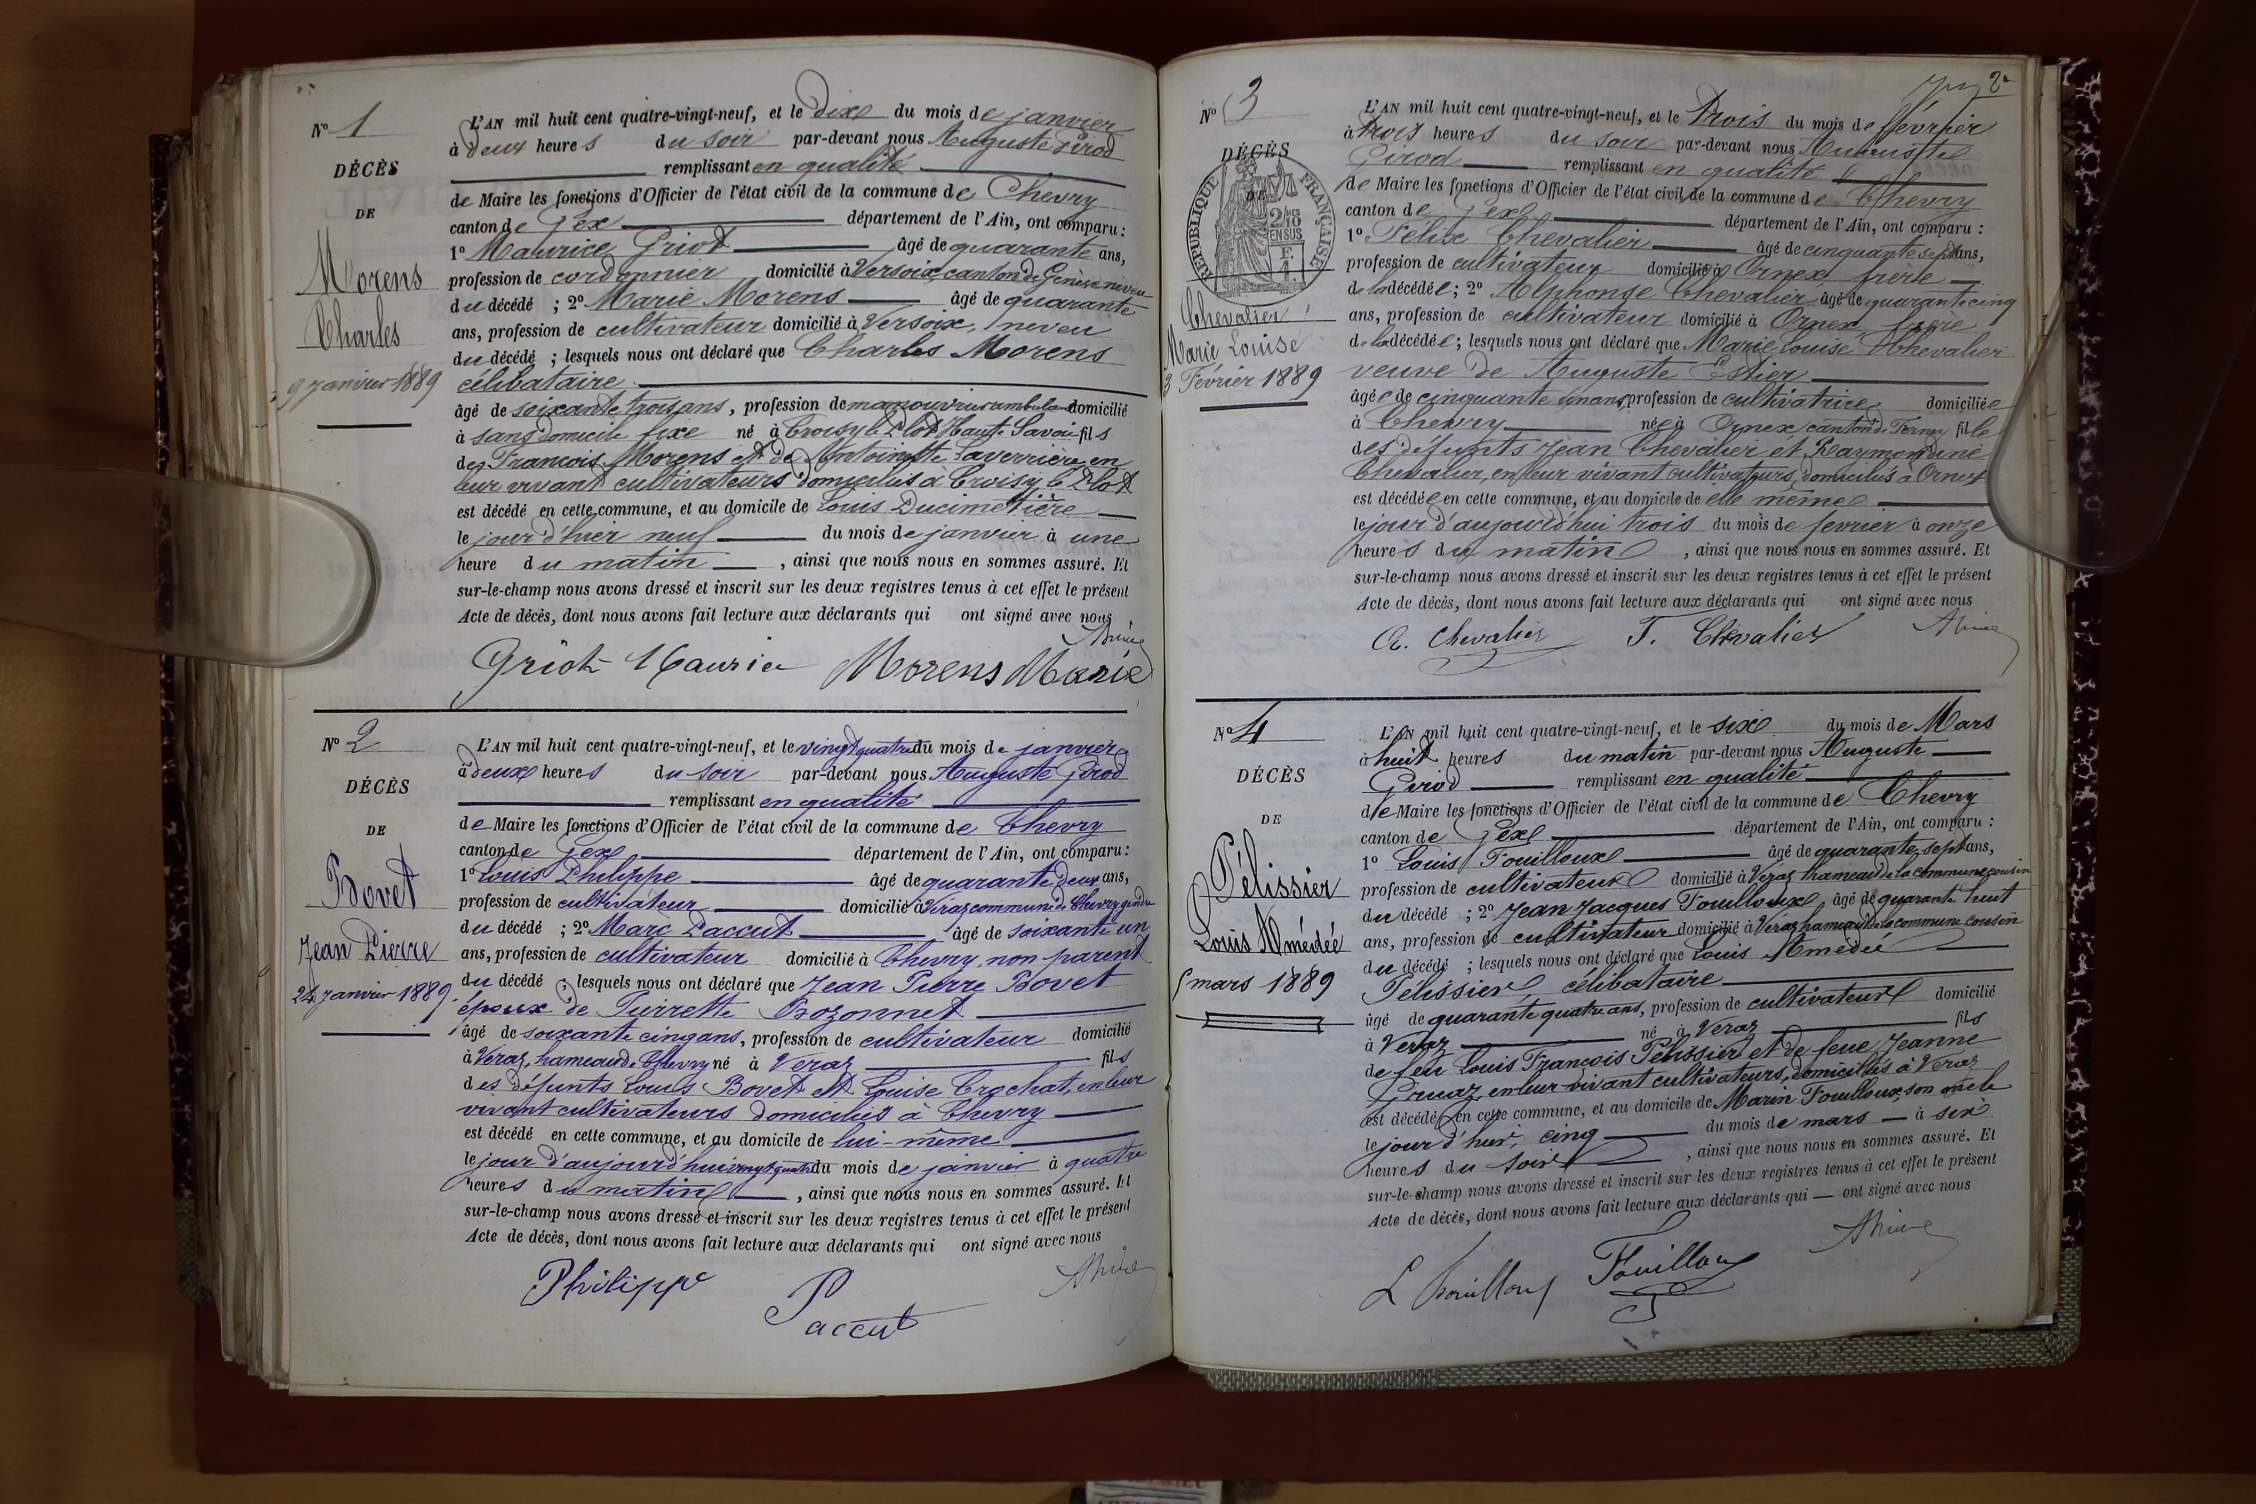 N° 1
DÉCÈS
DE
Morens
Charles
9 janvier 1889
L'AN mil huit cent quatre-vingt-neuf, et le dix du mois de janvier
à deux heures du soir par-devant nous Auguste Girod
remplissant en qualité
de Maire les fonctions d'Officier de l'état civil de la commune de Chevry
canton de Gex département de l'Ain, ont comparu :
1° Maurice Griot âgé de quarante ans,
profession de cordonnier domicilié à Versoix, canton de Genève neveu
du décédé ; 2° Marie Morens âgé de quarante
ans, profession de cultivateur domicilié à Versoix, neveu
du décédé ; lesquels nous ont déclaré que Charles Morens
célibataire
âgé de soixante trois ans, profession de manouvrier ambulant domicilié
à sans domicile fixe né à Croisy le Plot Haute Savoie fils
des François Morens et de Antoinette Laverrière en
leur vivant cultivateurs domiciliés à Croisy le Plot
est décédé en cette commune, et au domicile de Louis Ducimetière
le jour d'hier neuf du mois de janvier à une
heure du matin , ainsi que nous nous en sommes assuré. Et
sur-le-champ nous avons dressé et inscrit sur les deux registres tenus à cet effet le présent
Acte de décès, dont nous avons fait lecture aux déclarants qui ont signé avec nous
Griot Maurice Morens Marie
N° 2
DÉCÈS
DE
Bovet
Jean Pierre
24 janvier 1889
L'AN mil huit cent quatre-vingt-neuf, et le vingt quatre du mois de janvier
à deux heures du soir par-devant nous Auguste Girod
remplissant en qualité
de Maire les fonctions d'Officier de l'état civil de la commune de Chevry
canton de Gex département de l'Ain, ont comparu :
1° Louis Philippe âgé de quarante deux ans,
profession de cultivateur domicilié à Véraz commune de Chevry gendre
du décédé ; 2° Marc Paccut âgé de soixante un
ans, profession de cultivateur domicilié à Chevry, non parent
du décédé ; lesquels nous ont déclaré que Jean Pierre Bovet
époux de Pierrette Bozonnet
âgé de soixante cinq ans, profession de cultivateur domicilié
à Véraz, hameau de Chevry né à Veraz fils
des défunts Louis Bovet et Louise Crochat, en leur
vivant cultivateurs domiciliés à Chevry
est décédé en cette commune, et au domicile de lui-même
le jour d'aujourd'hui vingt quatre du mois de janvier à quatre
heures du matin , ainsi que nous nous en sommes assuré. Et
sur-le-champ nous avons dressé et inscrit sur les deux registres tenus à cet effet le présent
Acte de décès, dont nous avons fait lecture aux déclarants qui ont signé avec nous
Philippe Paccut
2
N° 3
DÉCÈS
DE
RÉPUBLIQUE FRANÇAISE
2/10 EN SUS
Chevalier
Marie Louise
3 Février 1889
L'AN mil huit cent quatre-vingt-neuf, et le trois du mois de février
à trois heures du soir par-devant nous Auguste
Girod remplissant en qualité
de Maire les fonctions d'Officier de l'état civil de la commune de Chevry
canton de Gex département de l'Ain, ont comparu :
1° Félix Chevalier âgé de cinquante sept ans,
profession de cultivateur domicilié à Ornex frère
de la décédée ; 2° Alphonse Chevalier âgé de quarante cinq
ans, profession de cultivateur domicilié à Ornex, frère
de la décédée ; lesquels nous ont déclaré que Marie Louise Chevalier
veuve de Auguste Estier
âgée de cinquante un ans, profession de cultivatrice domiciliée
à Chevry née à Ornex canton de Ferney fille
des défunts Jean Chevalier et Raymondine
Chevalier, en leur vivant cultivateurs, domiciliés à Ornex
est décédée en cette commune, et au domicile de elle même
le jour d'aujourd'hui trois du mois de février à onze
heures du matin , ainsi que nous nous en sommes assuré. Et
sur-le-champ nous avons dressé et inscrit sur les deux registres tenus à cet effet le présent
Acte de décès, dont nous avons fait lecture aux déclarants qui ont signé avec nous
A. Chevalier F. Chevalier
N° 4
DÉCÈS
DE
Pélissier
Louis Amédée
5 mars 1889
L'AN mil huit cent quatre-vingt-neuf, et le six du mois de Mars
à huit heures du matin par-devant nous Auguste
Girod remplissant en qualité
de Maire les fonctions d'Officier de l'état civil de la commune de Chevry
canton de Gex département de l'Ain, ont comparu :
1° Louis Fouilloux âgé de quarante sept ans,
profession de cultivateur domicilié à Véraz hameau de la commune cousin
du décédé ; 2° Jean Jacques Fouilloux âgé de quarante huit
ans, profession de cultivateur domicilié à Véraz hameau de la commune cousin
du décédé ; lesquels nous ont déclaré que Louis Amédée
Pélissier, célibataire
âgé de quarante quatre ans, profession de cultivateur domicilié
à Veraz né à Veraz fils
de feu Louis François Pélissier et de feue Jeanne
en leur vivant cultivateurs, domiciliés à Veraz
est décédé en cette commune, et au domicile de Marin Fouilloux son oncle
le jour d'hier, cinq du mois de mars à six
heures du soir , ainsi que nous nous en sommes assuré. Et
sur-le-champ nous avons dressé et inscrit sur les deux registres tenus à cet effet le présent
Acte de décès, dont nous avons fait lecture aux déclarants qui ont signé avec nous
L Fouilloux Fouilloux